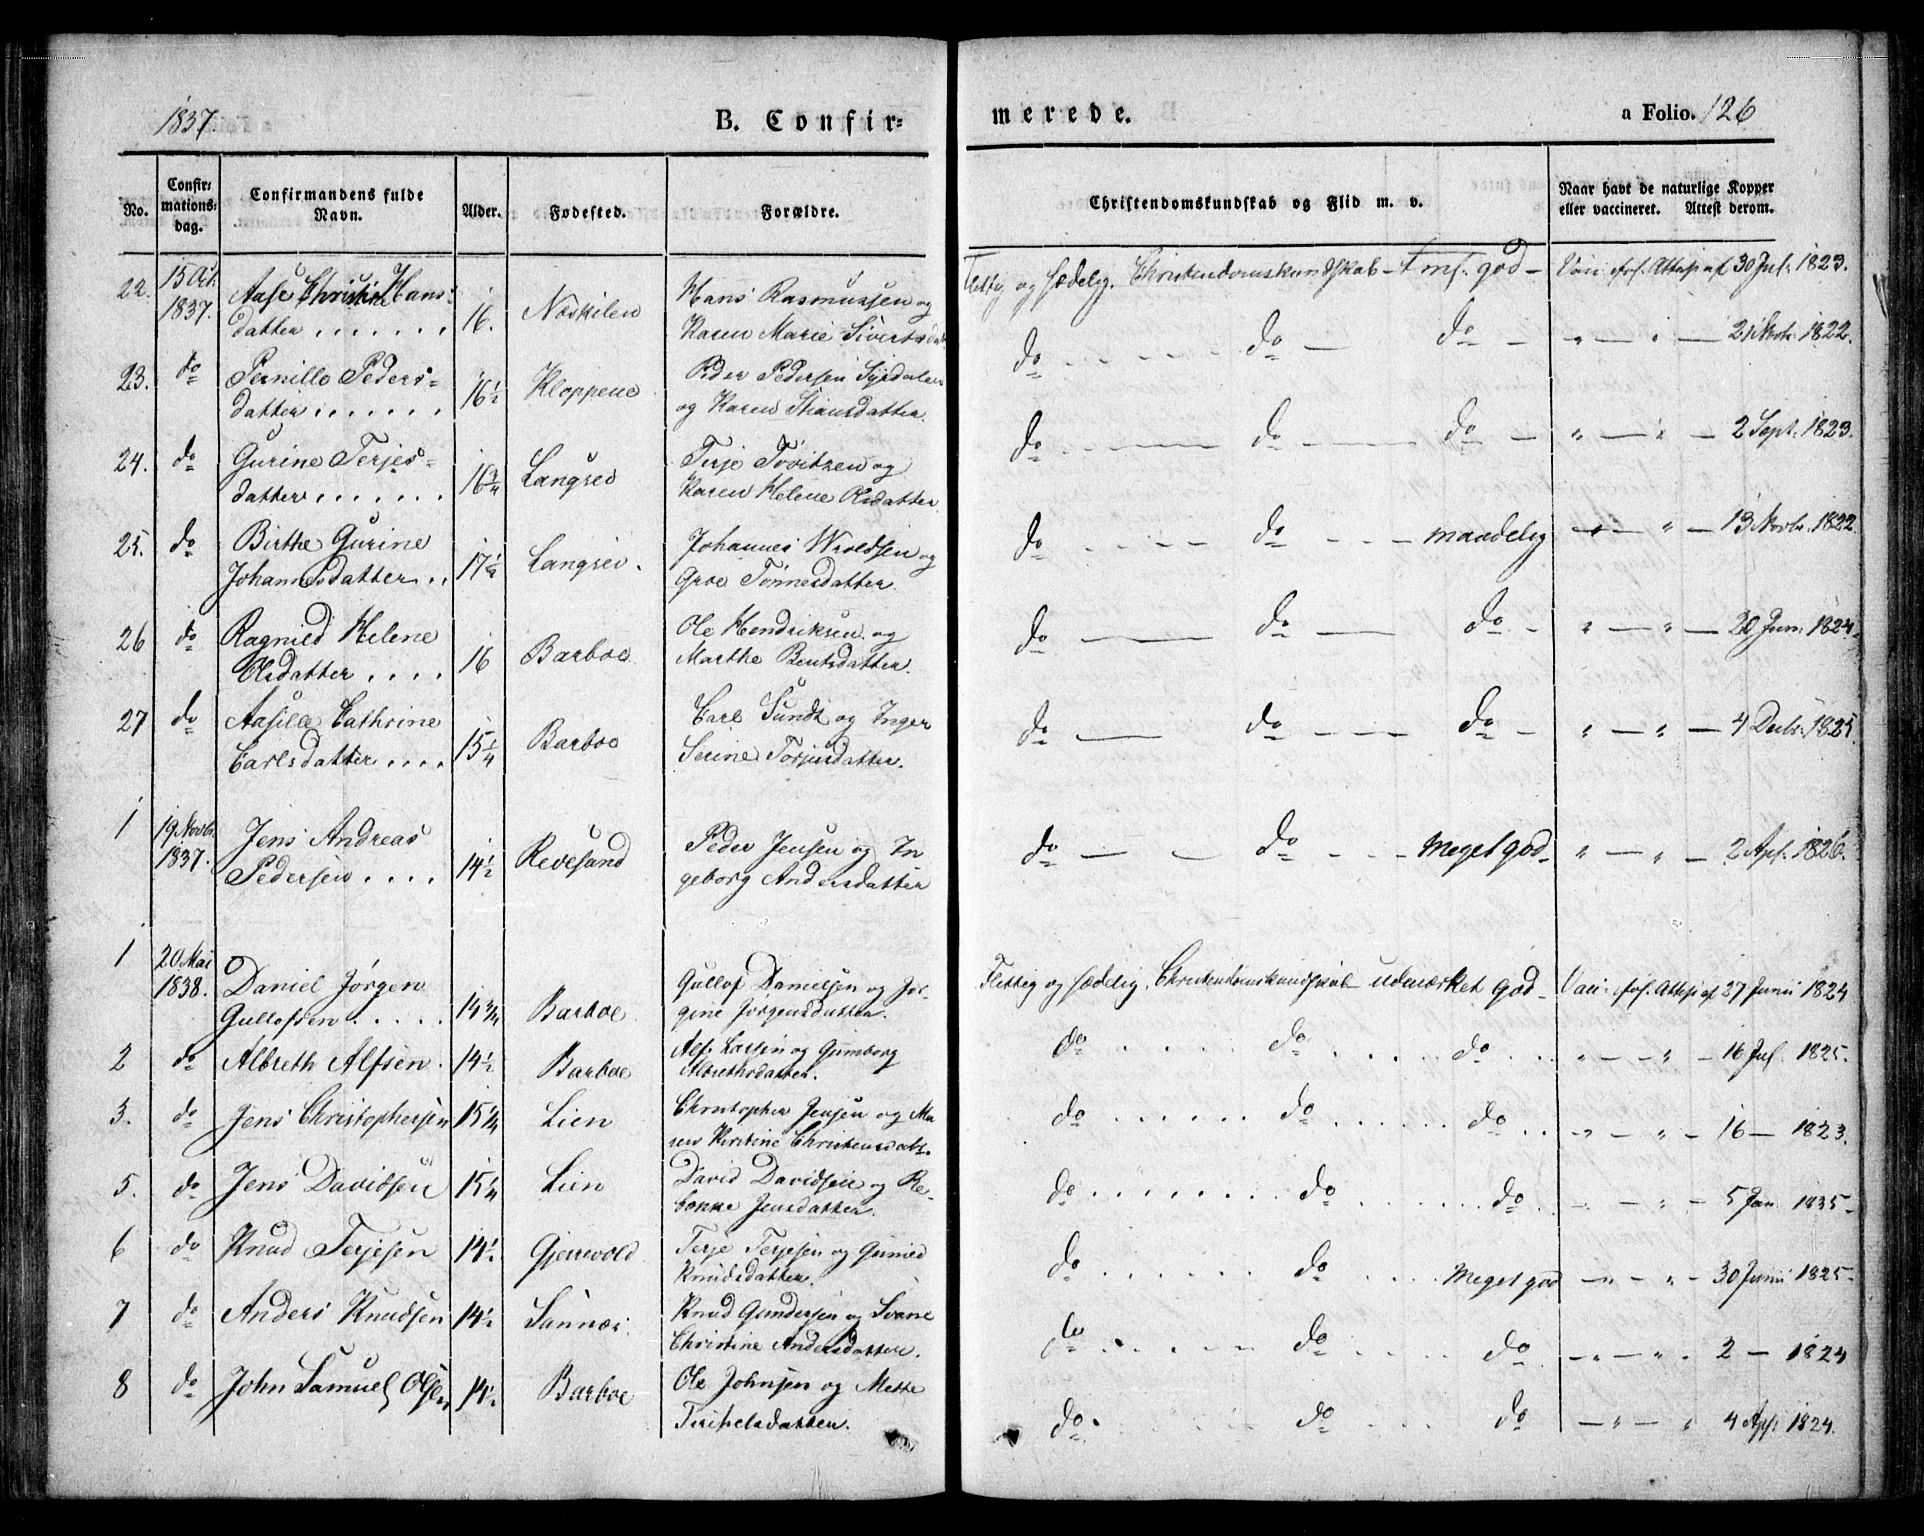 1837. B. Confir=
merede. a Folio. 126
No. Confir=mations=dag. Confirmandens fulde Navn. Alder. Fødested. Forældre.
Christendomskundskab og Flid m. v. Naar havt de naturlige Kopper eller vaccineret. Attest derom.
22. 15 Oct. 1837. Aase Christine Hans=
datter 16. Noskilen Hans Rasmussen og
Karen Marie Sivertsdat
Flittig og sædelig. Christendomskundskab god Vac. Attest af 30 Jul. 1823.
23. do Pernille Peders=
datter 16½ Kloppene Peder Pedersen
og Karen Stiansdatter
do do do 21 Novbr. 1822.
24. do Gurine Terjes=
datter 16¾ Langsev Terje og
Karen Helene Olsdatter
do do do 2 Sept. 1823.
25. do Birthe Gurine
Johannesdatter 17¼ Langsev. Johannes og
Groe Tønnesdatter
do do maadelig 13 Novbr. 1822
26 do Ragnild Helene
Olsdatter 16 Barboe Ole Hendriksen og
Marthe Bentsdatter
do do do 20 Juni 1824
27 do Aasille Cathrine
Carlsdatter 15¼ Barboe Carl Sundt og Inger
Serine Torjusdatter.
do do do 4 Decbr. 1825
1 19 Novbr. 1837. Jens Andreas
Pedersen 14½ Revesand Peder Jensen og In
geborg Andersdatter
do do meget god 2 Apr. 1826.
1 20 Mai 1838. Daniel Jørgen
Gullofsen 14¾ Barboe Gullof Danielsen og Jør=
gine Jørgensdatter.
Flittig og sædelig. Christendomskundskab udmærket god Vac. Attest af 27 Junii 1824
2 do Albreth Alfsen. 14½ Barboe Alf Larsen og Gunborg
Albrethsdatter.
do do do 16 Jul. 1825.
3. do Jens Christophersen 15¼ Lien Christopher Jensen og Ma
ren Kirstine Christensdatr.
do do do 16 — 1823.
5. do Jens Davidsen 15¼ Lien David Davidsen og Re=
bekke Jensdatter.
do do do 5 Jan 1835
6 do Knud Terjesen 14½ Gjerevold Terje Terjesen og Gunild
Knudsdatter.
do do meget god 30 Junii 1825
7 do Anders Knudsen 14½ Sannæs Knud Gundersen og Svane
Christine Andersdatter.
do do do 2 — 1824
8 do John Samuel Olsen 14½ Barboe Ole Johnsen og Mette
Terkelsdatter.
do do do 4 Apr. 1824.